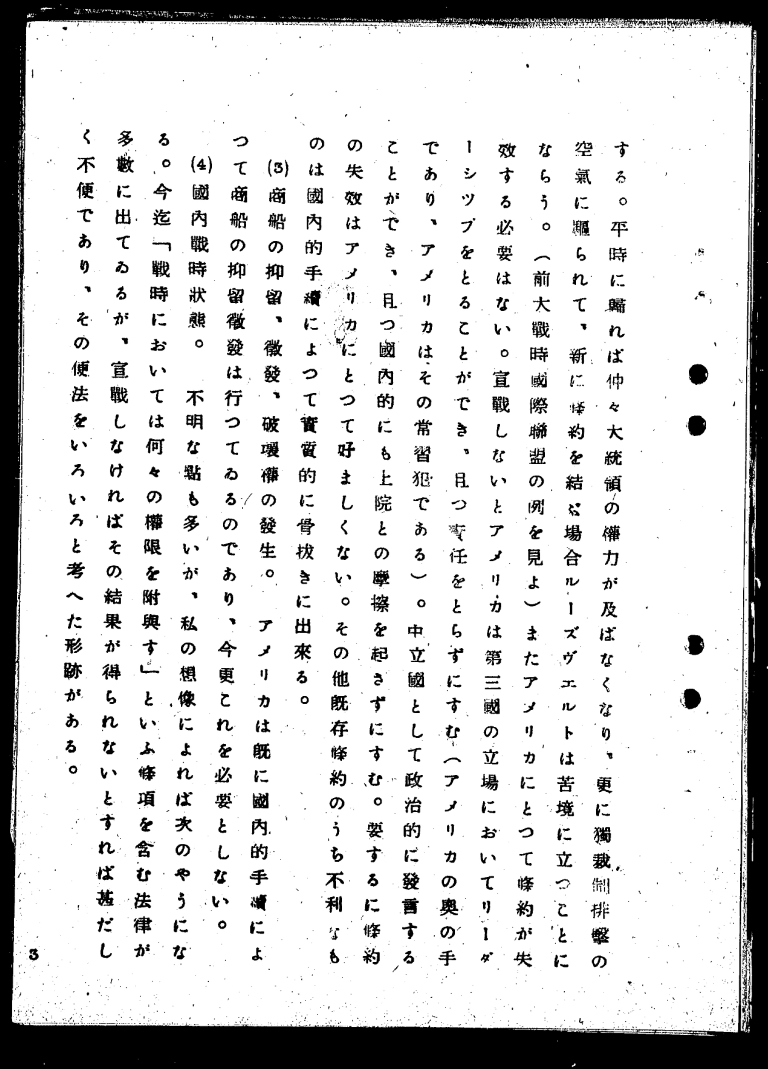 する。平時に歸れば仲々大統領の權力が及ばなくなり、更に獨裁制排擊の
空氣に驅られて、新に條約を結ぶ場合ルーズヴエルトは苦境に立つことに
ならう。（前大戰時國際聯盟の例を見よ）またアメリカにとつて條約が失
效する必要はない。宣戰しないとアメリカは第三國の立場においてリーダ
ーシツプをとることができ、且つ責任をとらずにすむ（アメリカの奧の手
であり、アメリカはその常習犯である）。中立國として政治的に發言する
ことができ、且つ國內的にも上院との摩擦を起さずにすむ。要するに條約
の失效はアメリカにとつて好ましくない。その他既存條約のうち不利なも
のは國內的手續によつて實質的に骨拔きに出來る。
(3)商船の抑留、徵發、破壞權の發生。　アメリカは既に國內的手續によ
つて商船の抑留徵發は行つてゐるのであり、今更これを必要としない。
(4)國內戰時狀態。　不明な點も多いが、私の想像によれば次のやうにな
る。今迄「戰時においては何々の權限を附與す」といふ條項を含む法律が
多數に出てゐるが、宣戰しなければその結果が得られないとすれば甚だし
く不便であり、その便法をいろいろと考へた形跡がある。
3